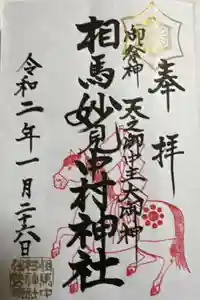 奉拝
御祭神 天之御中主大御神
相馬妙見中村神社
令和二年一月二十六日